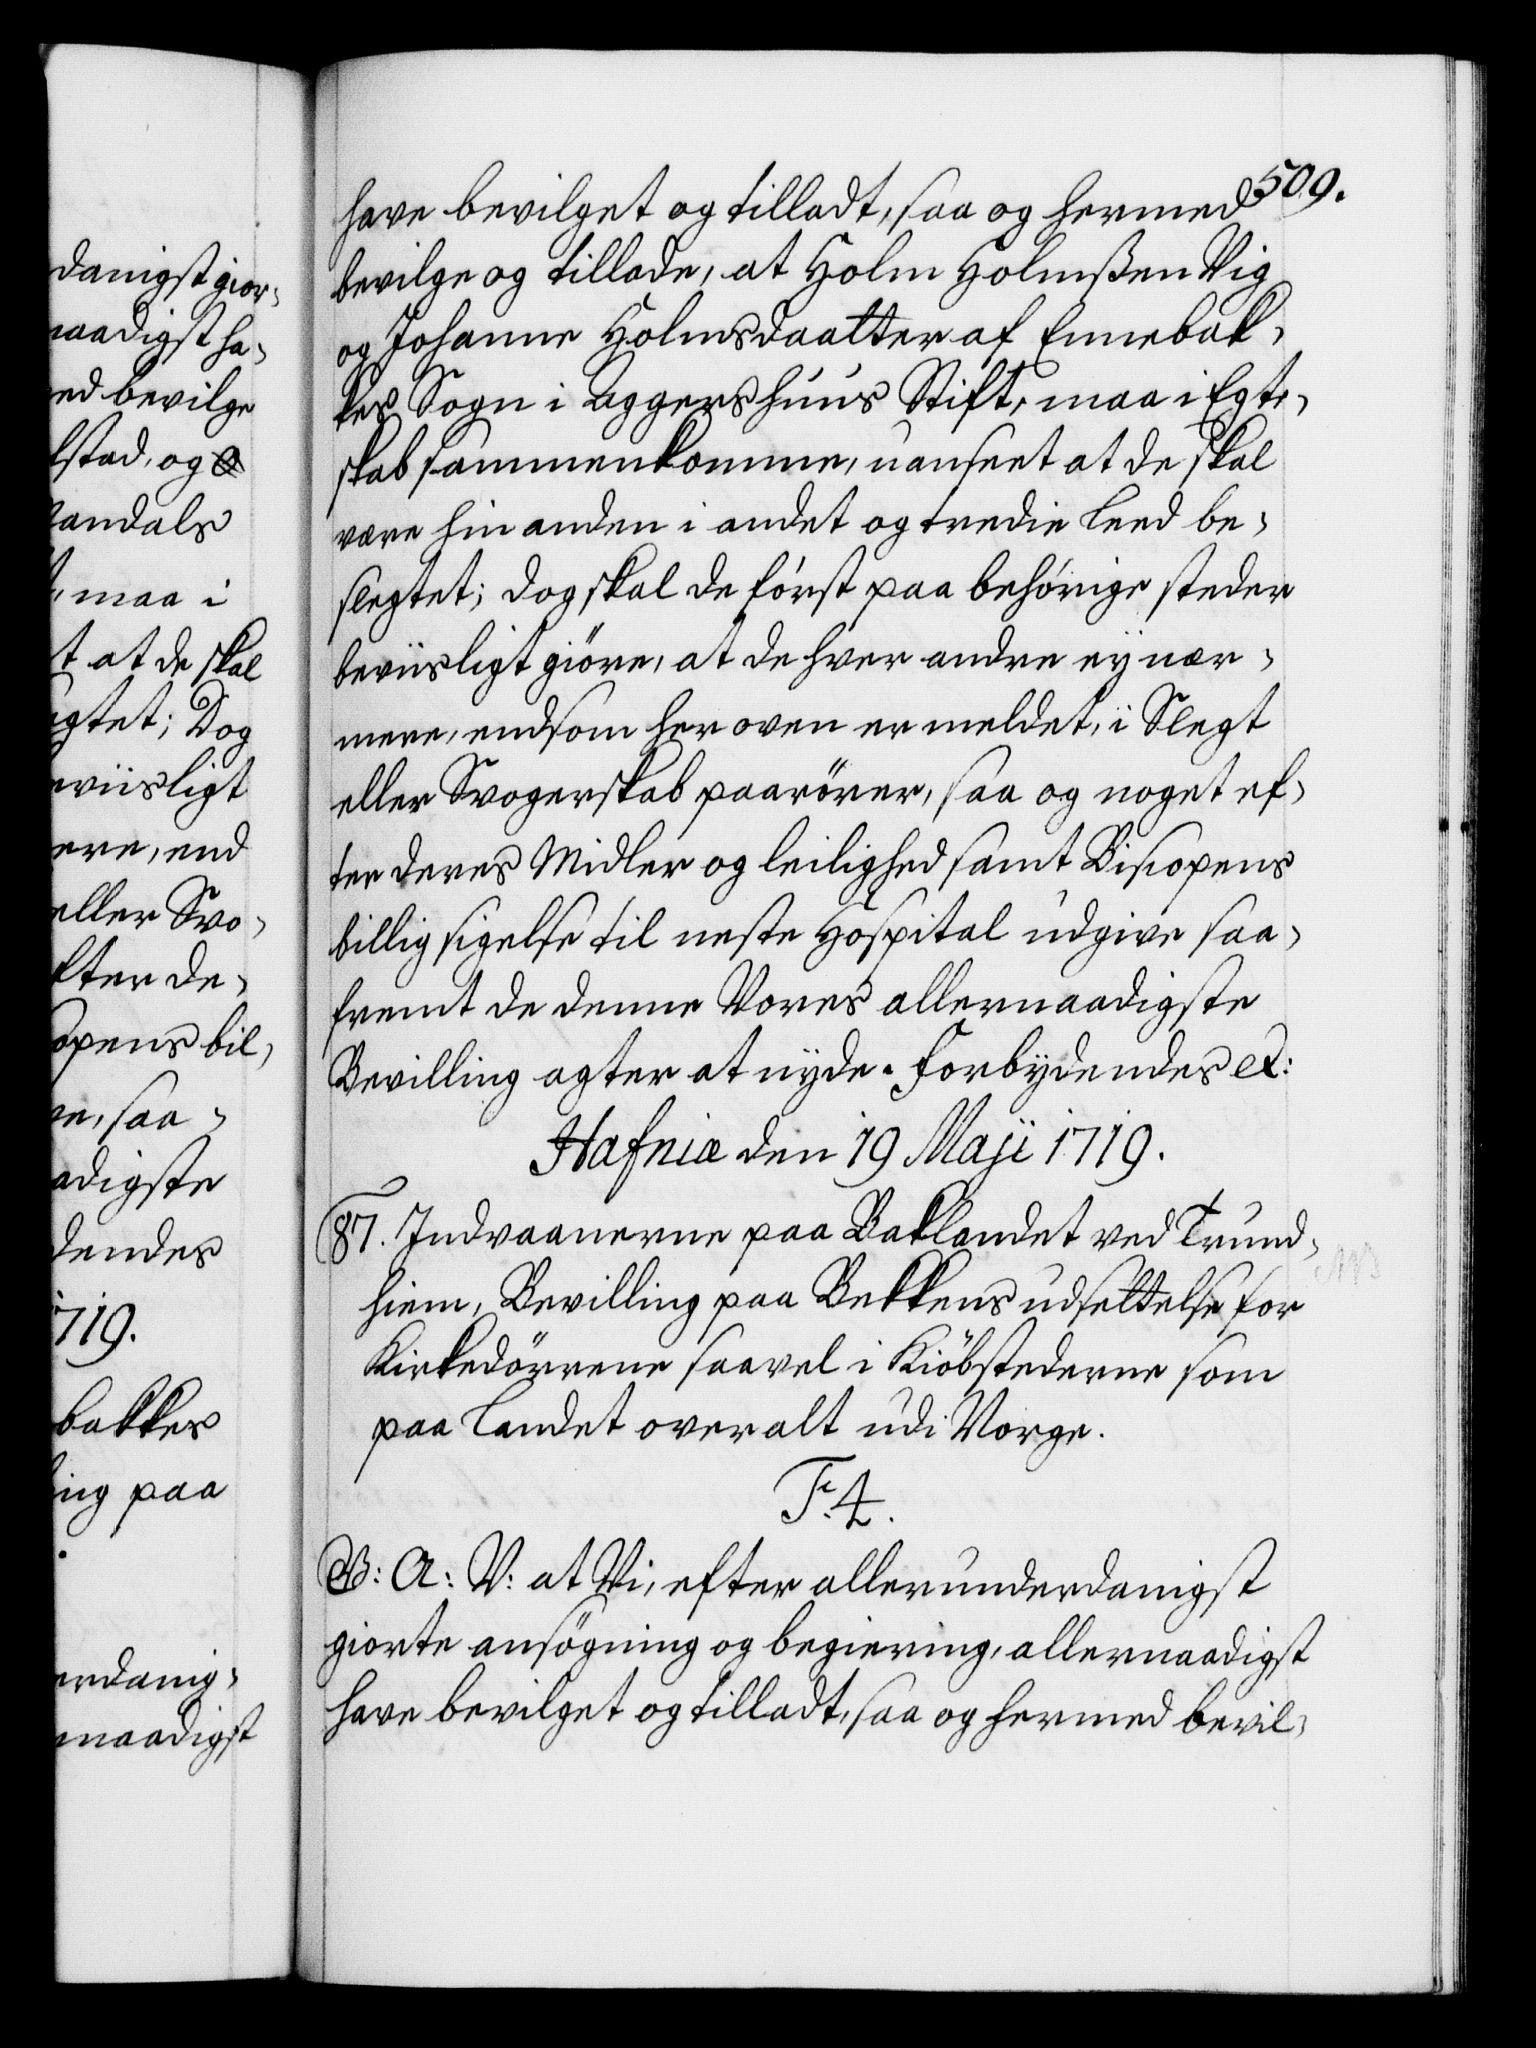 danigst gior-
naadigst ha-
ed bevilge
lstad, og
andals
maa i
t at de skal
egtet; Dog
eviisligt
ere, end
eller Svo-
fter de-
opens bil-
ne, saa-
adigste
dendes
1719.
bakkes
ing paa
erdanig-
naadigst
509.
have bevilget og tilladt, saa og hermed
bevilge og tillade, at Holm Holmßen Vig
og Johanne Holmsdaatter af Ennebak-
kes Sogn i Aggershuus Stift, maa i Egte-
skab sammenkomme, uanseet at de skal
være hinanden i andet og tredie Leed be-
slegtet; dog skal de først paa behørige steder
beviisligt giøre, at de hver andre ey nær-
mere, end som her oven er meldet, i Slegt
eller Svogerskab paarører, saa og noget ef-
ter deres Midler og leilighed samt Biscopens
billig sigelse til neste Hospital udgive saa-
fremt de denne Vores allernaadigste
Bevilling agter at nyde. Forbydendes et:
Hafniæ den 19 Maji 1719.
87. Indvaanerne paa Baklandet ved Trund-
hiem, Bevilling paa Bekkens udsettelse for
Kirkedørrene saavel i Kiøbstederne som
paa Landet over alt udi Norge.
F. 4.
G: A: V: at Vi, efter allerunderdanigst
giorte ansøgning og begiering, allernaadigst
have bevilget og tilladt, saa og hermed bevil-